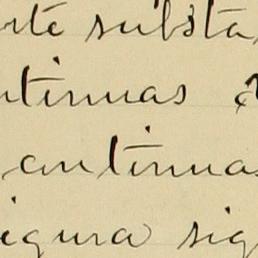 rte substa
ntinuas
continuas
igura sig